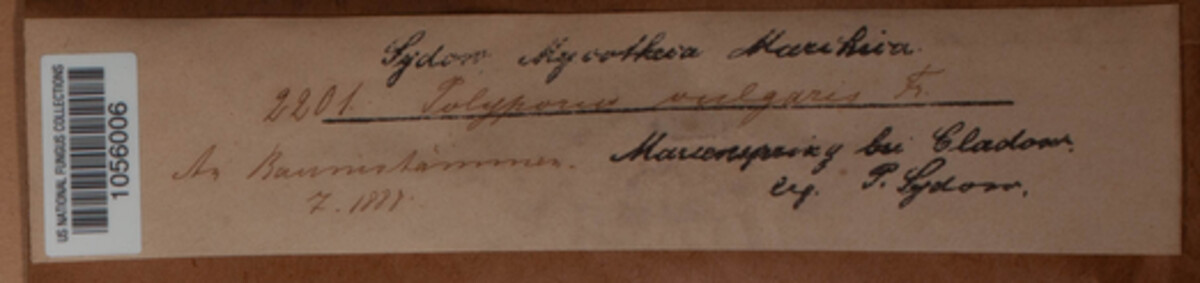 US NATIONAL FUNGUS COLLECTIONS
1056006
Sydow Mycotheca Marchica.
2201. Polyporus vulgaris Fr.
An Baumstämmen. Marienspring bei Cladow.
7. 1888. leg. P. Sydow.